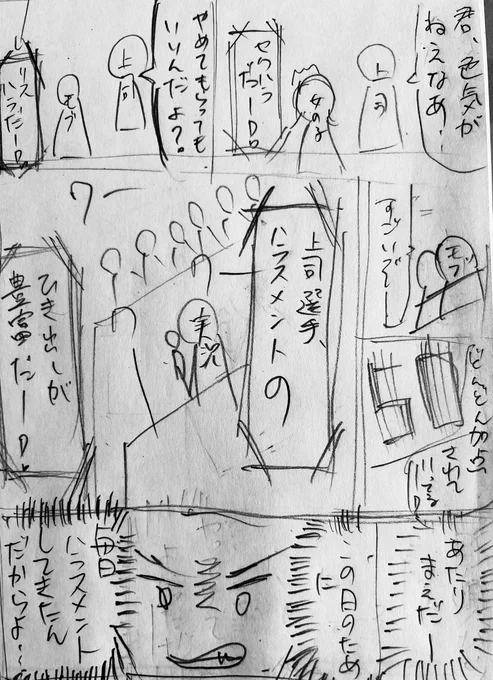 君、色気が
ねえなあ。
上司
女の子
セクハラ
だーーD。
やめてもらっても
いいんだよ?
上司
モブ
リス
ハラだーD。
モブ
すごいぞー
どんどん加点
されて
いってる
上司選手、
ハラスメントの
実況
ワー
ひき出しが
豊富だーーD。
あたり
まえだー
この日のため
に
毎日
ハラスメント
してきたん
だからよ〜